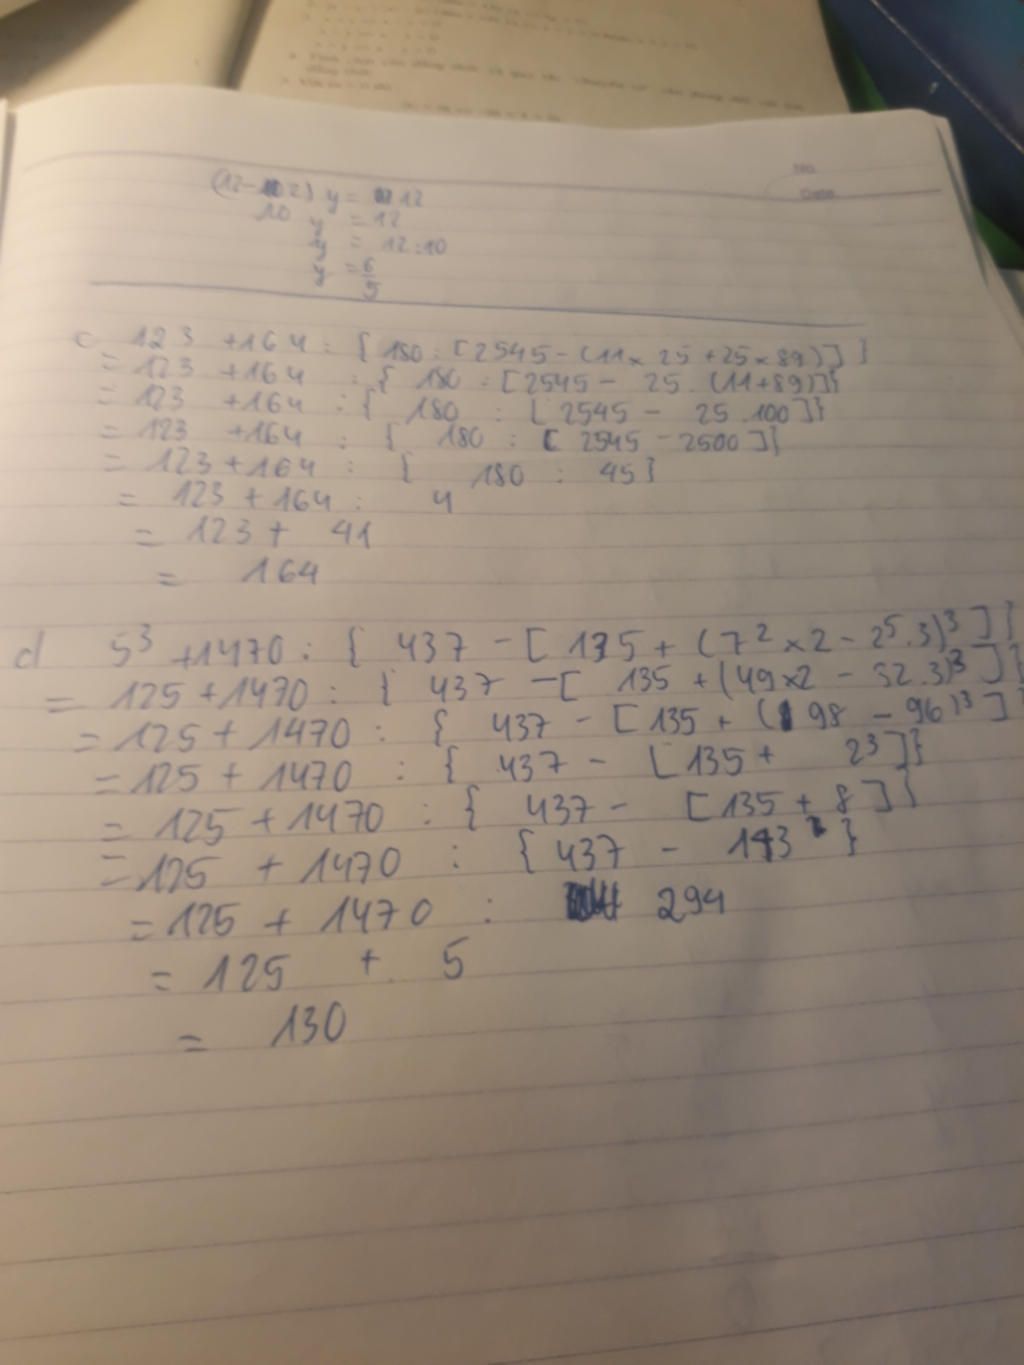 No.
Date
(12-2) y = 12
10 y = 12
y = 12:10
y = 6/5
c 123 +164 : { 180 : [2545-(11×25+25×89)] }
= 123 +164 : { 180 : [2545 - 25.(11+89)]}
= 123 +164 : { 180 : [2545 - 25.100]}
= 123 +164 : { 180 : [2545-2500]}
= 123+164 : { 180 : 45}
= 123 + 164 : 4
= 123 + 41
= 164
d 5³ +1470 : { 437 - [ 135 + (7² ×2 - 2⁵.3)³ ] }
= 125+1470 : { 437 - [ 135 + (49×2 - 32.3)³ ] }
= 125 + 1470 : { 437 - [135 + (98 - 96)³ ] }
= 125 + 1470 : { 437 - [135 + 2³]}
= 125 +1470 : { 437 - [135 + 8] }
= 125 + 1470 : {437 - 143 }
= 125 + 1470 : 294
= 125 + 5
= 130